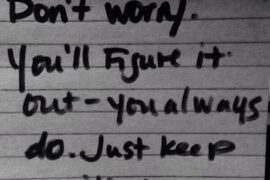 Don't worry.
You'll Figure it
out - you always
do. Just keep